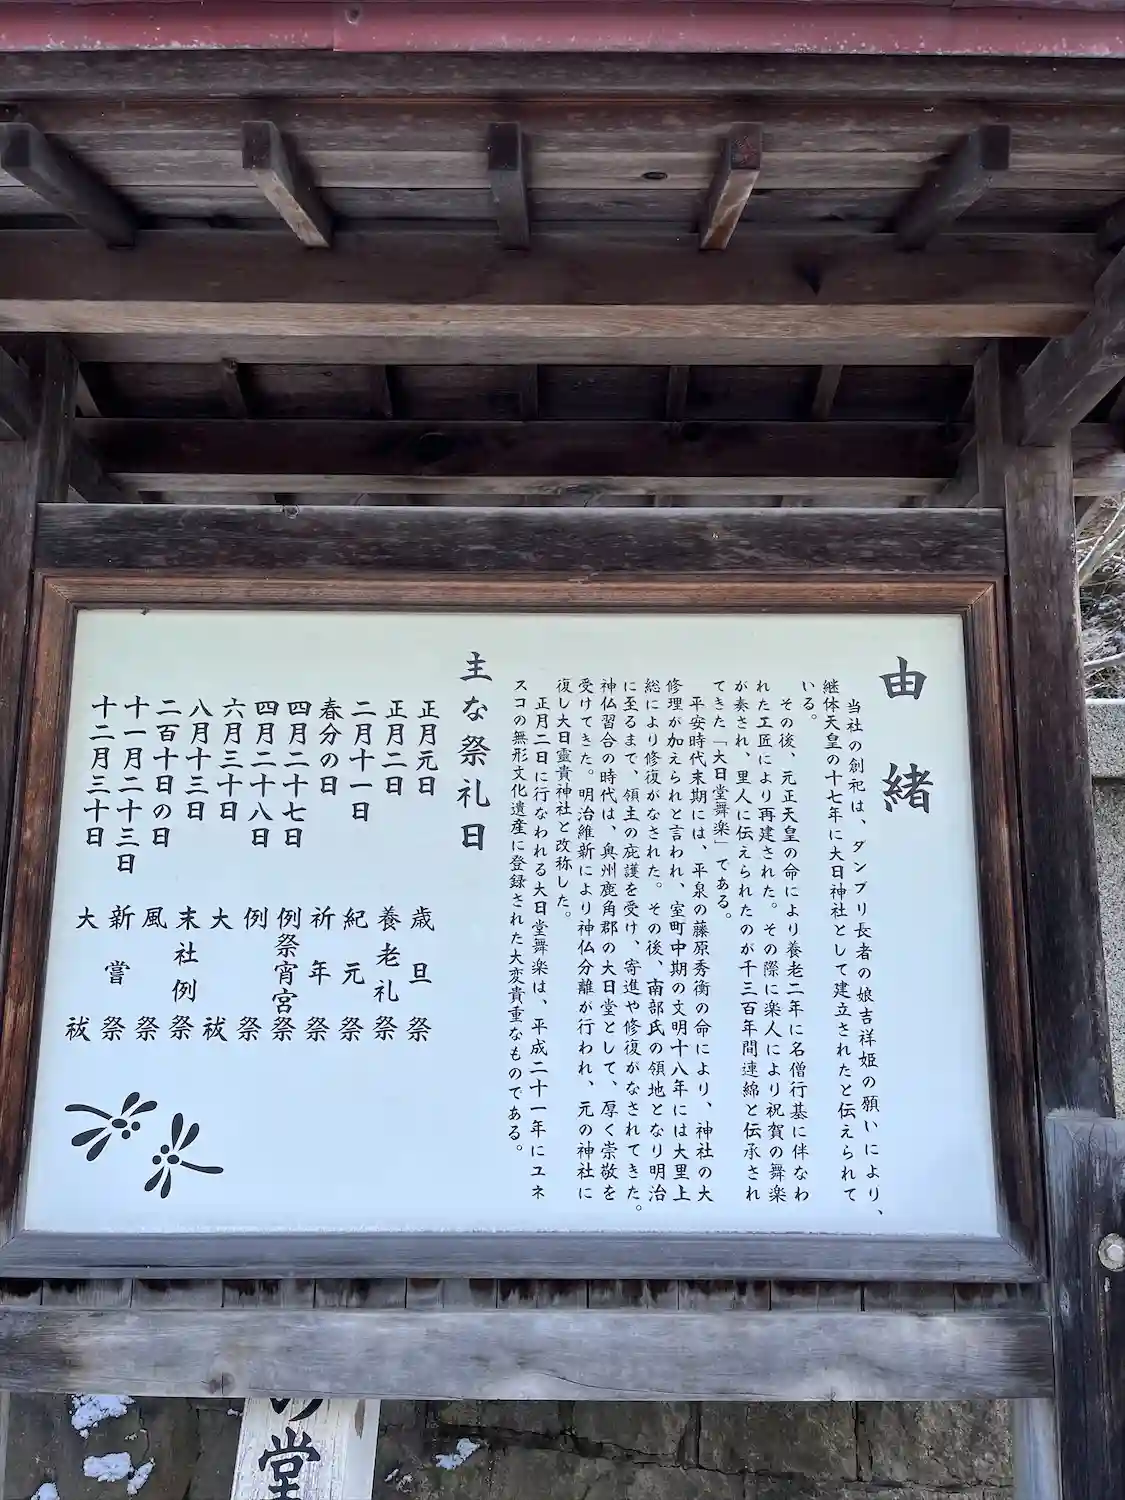 由緒
当社の創祀は、ダンブリ長者の娘吉祥姫の願いにより、
継体天皇の十七年に大日神社として建立されたと伝えられて
いる。
その後、元正天皇の命により養老二年に名僧行基に伴なわ
れた工匠により再建された。その際に楽人により祝賀の舞楽
が奏され、里人に伝えられたのが千三百年間連綿と伝承され
てきた「大日堂舞楽」である。
平安時代末期には、平泉の藤原秀衡の命により、神社の大
修理が加えられと言われ、室町中期の文明十八年には大里上
総により修復がなされた。その後、南部氏の領地となり明治
に至るまで、領主の庇護を受け、寄進や修復がなされてきた。
神仏習合の時代は、奥州鹿角郡の大日堂として、厚く崇敬を
受けてきた。明治維新により神仏分離が行われ、元の神社に
復し大日霊貴神社と改称した。
正月二日に行なわれる大日堂舞楽は、平成二十一年にユネ
スコの無形文化遺産に登録された大変貴重なものである。
主な祭礼日
正月元日 歳旦祭
正月二日 養老礼祭
二月十一日 紀元祭
春分の日 祈年祭
四月二十七日 例祭宵宮祭
四月二十八日 例祭
六月三十日 大祓
八月十三日 末社例祭
二百十日の日 風祭
十一月二十三日 新嘗祭
十二月三十日 大祓
の堂